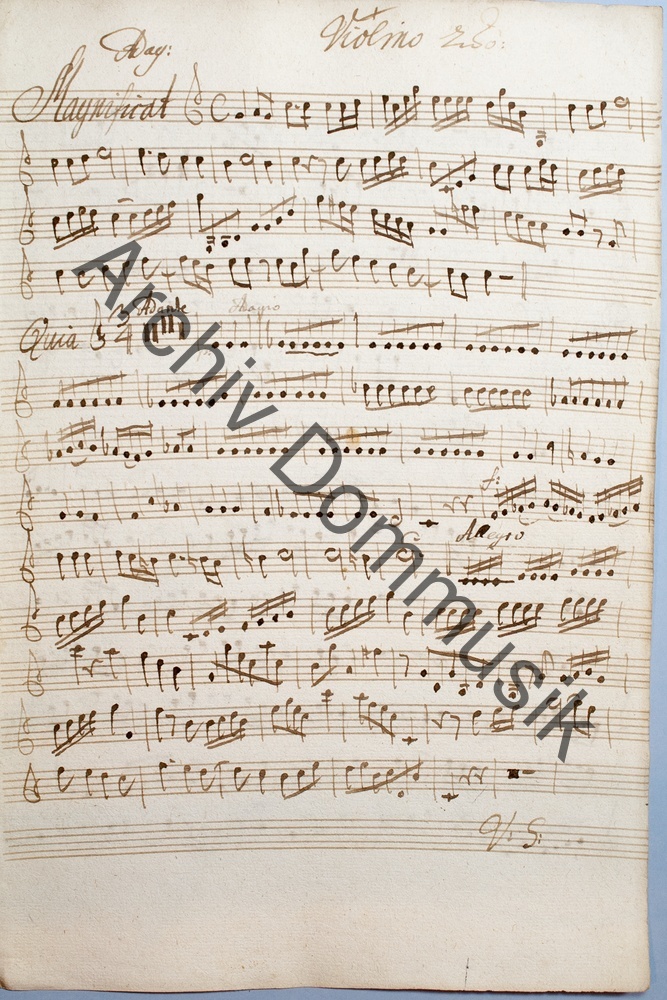 Violino 2do:
Magnificat
Adante
Adagio
Quia
f:
Allegro
V: S:
Archiv Dommusik